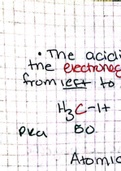 • The acidi
the electroneg
from left to
H₃C-H
pKa 50
Atomic